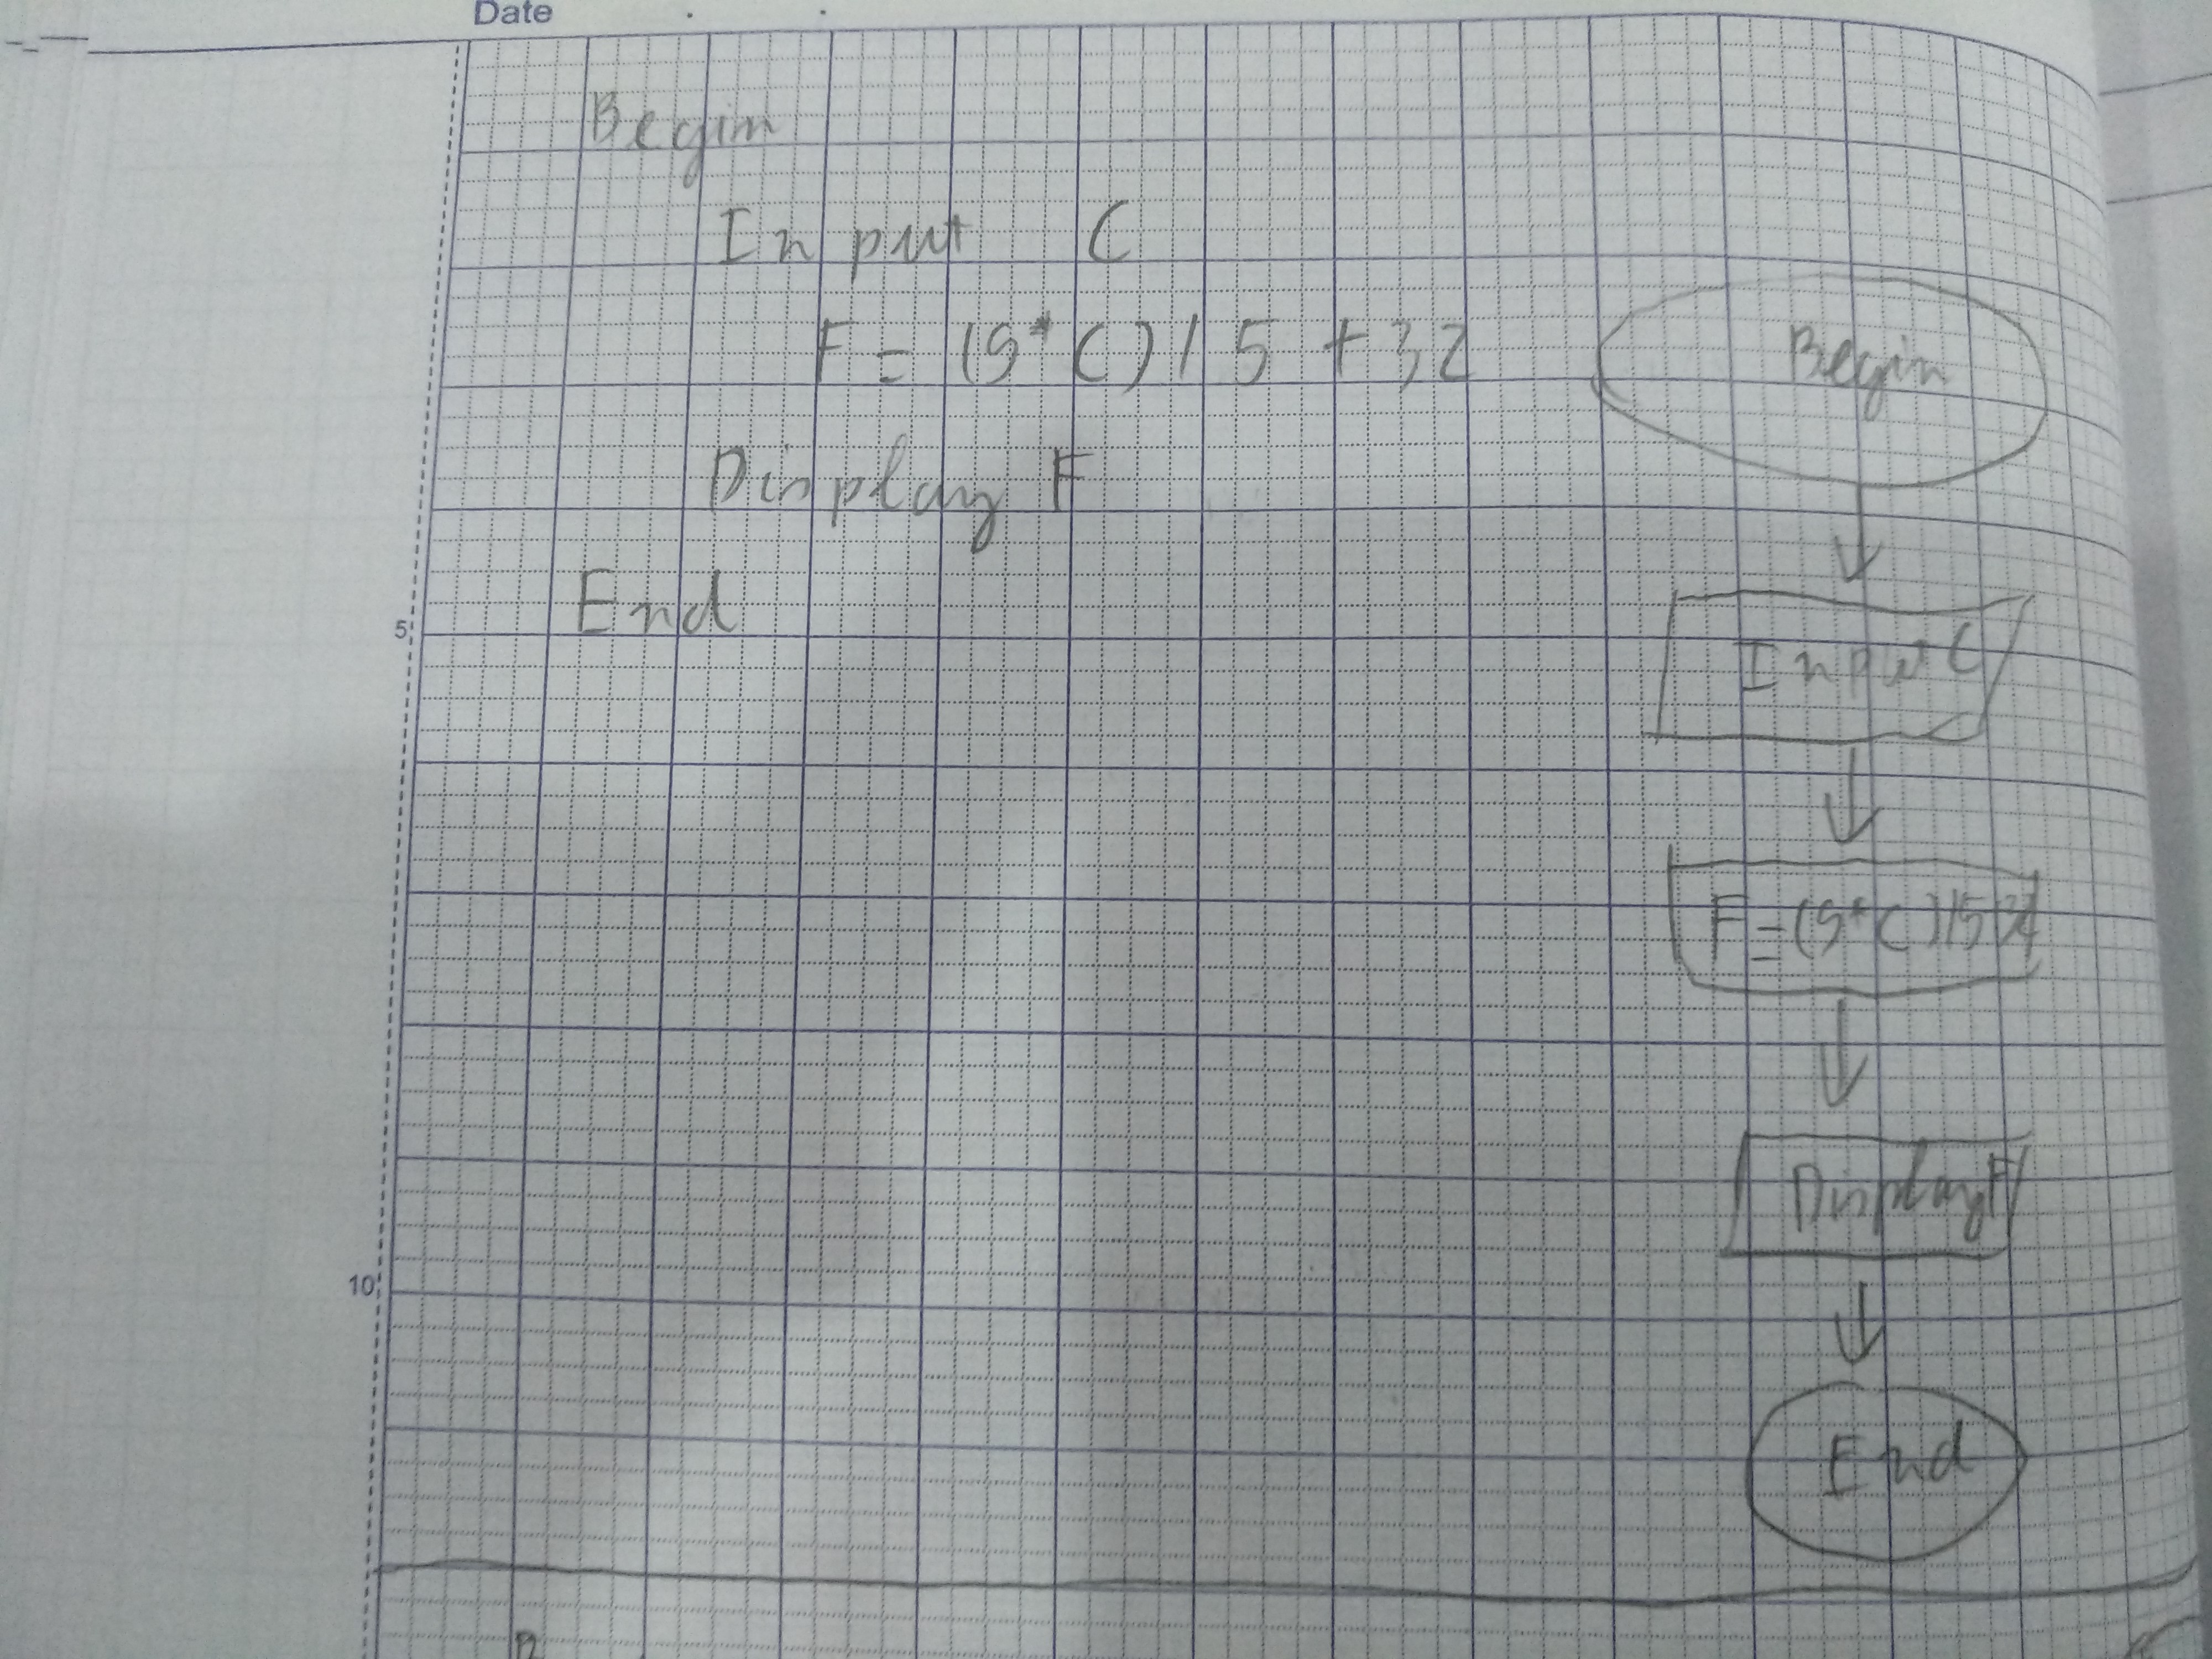 Date
Begin
Input C
F = (9*C)/5 + 32
Display F
End
5
10
Begin
Input C
F=(9*C)/5
Display F
End